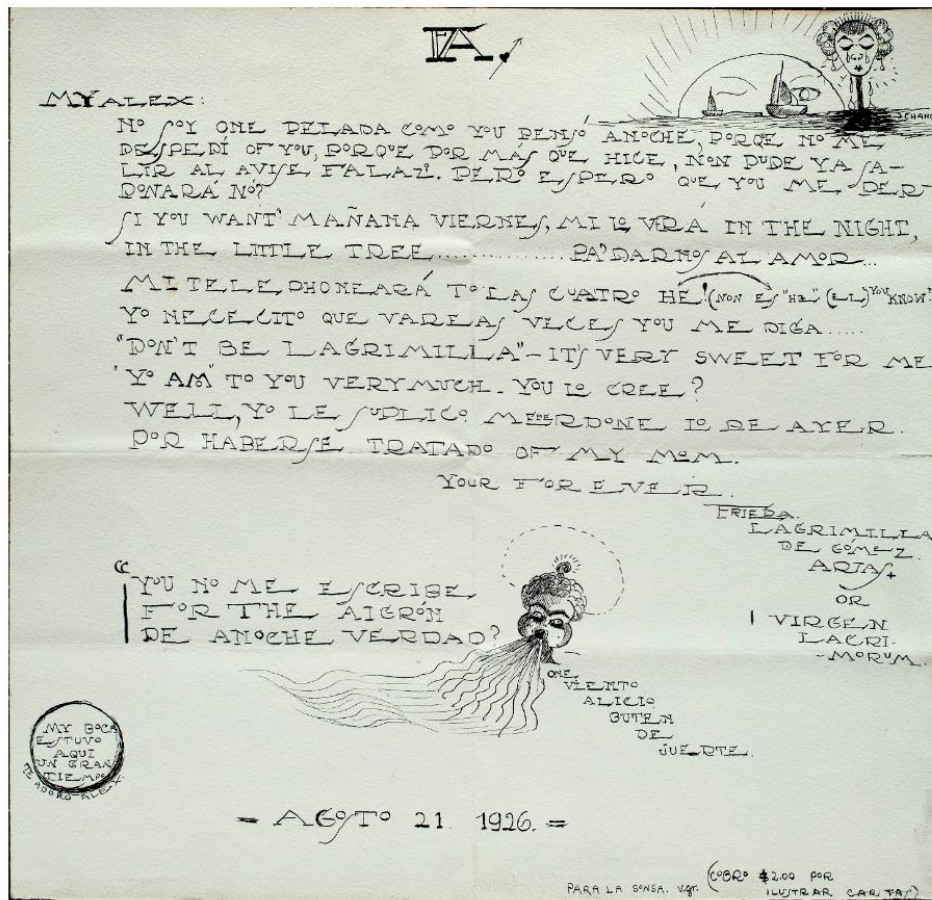 FA
MY ALEX:
NO SOY ONE PELADA COMO YOU PENSÓ ANOCHE, PORQE NO ME
DESPEDÍ OF YOU, PORQUE POR MÁS QUE HICE, NON PUDE YA SA-
LIR AL AVISE FALAZ. PERO ESPERO QUE YOU ME PER-
DONARÁ NÓ?
SI YOU WANT MAÑANA VIERNES, MI LO VRÁ IN THE NIGHT,
IN THE LITTLE TREE............. PA' DARNOS AL AMOR...
MI TELEPHONEARÁ TO LAS CUATRO HE! (NON ES "HE" (EL) YOU KNOW!
YO NECECITO QUE VAREAS VECES YOU ME DIGA.....
"DON'T BE LAGRIMILLA" - IT'S VERY SWEET FOR ME
"YO AM" TO YOU VERY MUCH. YOU LO CREE?
WELL, YO LE SUPLICO ME PERDONE LO DE AYER.
POR HABERSE TRATADO OF MY MOM.
YOUR FOR EVER.
FRIEDA.
LAGRIMILLA
DE GÓMEZ
ARIAS
OR
VIRGEN
LACRI-
-MORUM.
"YOU NO ME ESCRIBE
FOR THE AIGRÓN
DE ANOCHE VERDAD?
ONE
VIENTO
ALICIO
BUTEN
DE
JUERTE.
MY BOCA
ESTUVO
AQUI
UN GRAN
TIEMPO
TE ADORO ALEX.
= AGOSTO 21. 1926. =
PARA LA SONSA. (COBRO $2.00 POR
ILUSTRAR CARITAS)